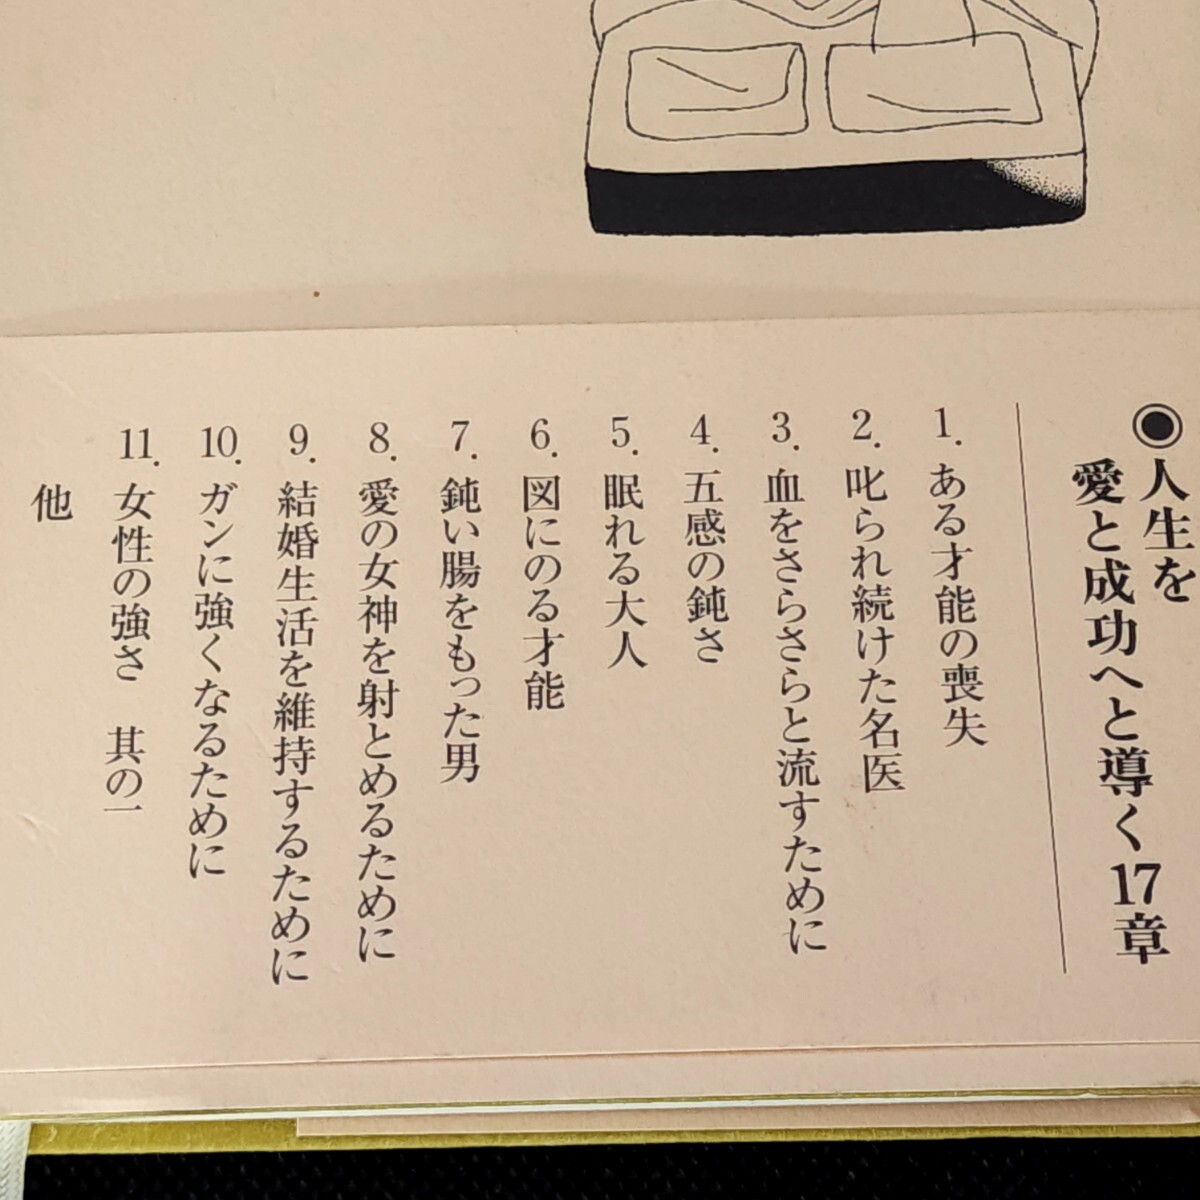 ◉人生を
愛と成功へと導く17章
1. ある才能の喪失
2. 叱られ続けた名医
3. 血をさらさらと流すために
4. 五感の鈍さ
5. 眠れる大人
6. 図にのる才能
7. 鈍い腸をもった男
8. 愛の女神を射とめるために
9. 結婚生活を維持するために
10. ガンに強くなるために
11. 女性の強さ　其の一
他